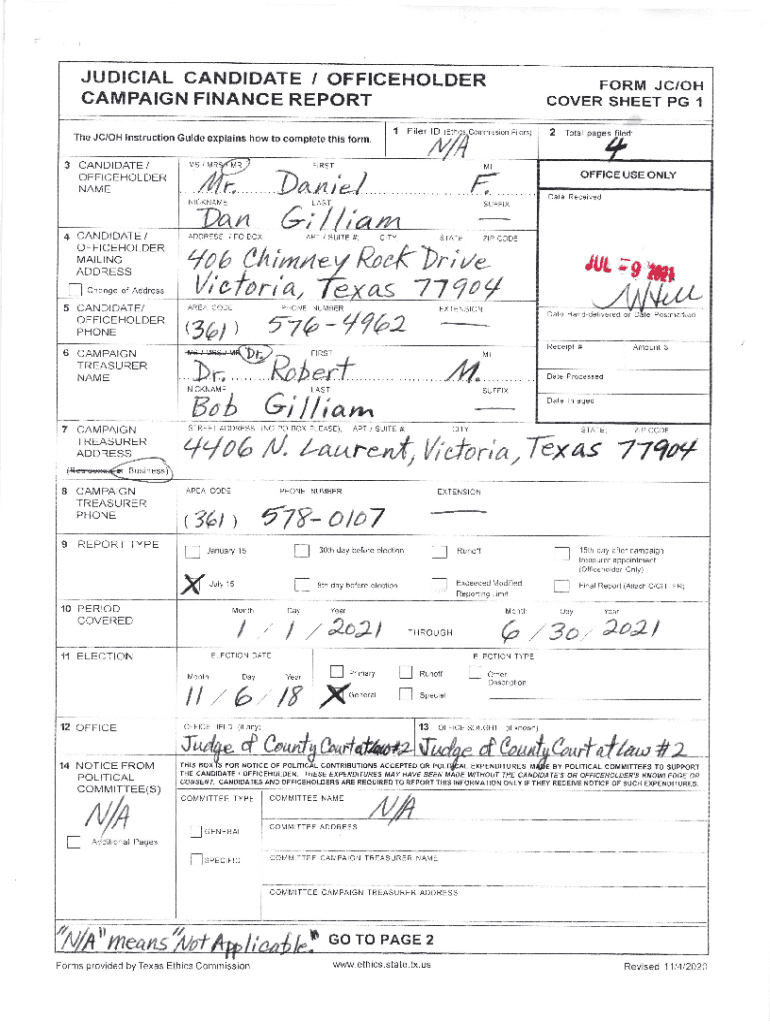 JUDICIAL CANDIDATE / OFFICEHOLDER
CAMPAIGN FINANCE REPORT
FORM JC/OH
COVER SHEET PG 1
The JC/OH Instruction Guide explains how to complete this form.
1 Filer ID (Ethics Commission Filers)
N/A
2 Total pages filed:
4
3 CANDIDATE / OFFICEHOLDER NAME
MS / MRS / MR FIRST MI
Mr. Daniel F.
NICKNAME LAST SUFFIX
Dan Gilliam —
OFFICE USE ONLY
Date Received
JUL -9 2021
4 CANDIDATE / OFFICEHOLDER MAILING ADDRESS
Change of Address
ADDRESS / PO BOX; APT / SUITE #; CITY; STATE; ZIP CODE
406 Chimney Rock Drive
Victoria, Texas 77904
Date Hand-delivered or Date Postmarked
5 CANDIDATE/ OFFICEHOLDER PHONE
AREA CODE PHONE NUMBER EXTENSION
(361) 576-4962 —
Receipt # Amount $
6 CAMPAIGN TREASURER NAME
MS / MRS / MR Dr. FIRST MI
Dr. Robert M.
NICKNAME LAST SUFFIX
Bob Gilliam —
Date Processed
Date Imaged
7 CAMPAIGN TREASURER ADDRESS
(Residence or Business)
STREET ADDRESS (NO PO BOX PLEASE); APT / SUITE #; CITY; STATE; ZIP CODE
4406 N. Laurent, Victoria, Texas 77904
8 CAMPAIGN TREASURER PHONE
AREA CODE PHONE NUMBER EXTENSION
(361) 578-0107 —
9 REPORT TYPE
January 15 30th day before election Runoff 15th day after campaign treasurer appointment (Officeholder Only)
X July 15 8th day before election Exceeded Modified Reporting Limit Final Report (Attach C/OH - FR)
10 PERIOD COVERED
Month Day Year Month Day Year
1 / 1 / 2021 THROUGH 6 / 30 / 2021
11 ELECTION
ELECTION DATE ELECTION TYPE
Month Day Year
11 / 6 / 18
Primary Runoff Other Description
X General Special
12 OFFICE
OFFICE HELD (if any)
Judge of County Court at Law #2
13 OFFICE SOUGHT (if known)
Judge of County Court at Law #2
14 NOTICE FROM POLITICAL COMMITTEE(S)
N/A
Additional Pages
THIS BOX IS FOR NOTICE OF POLITICAL CONTRIBUTIONS ACCEPTED OR POLITICAL EXPENDITURES MADE BY POLITICAL COMMITTEES TO SUPPORT
THE CANDIDATE / OFFICEHOLDER. THESE EXPENDITURES MAY HAVE BEEN MADE WITHOUT THE CANDIDATE'S OR OFFICEHOLDER'S KNOWLEDGE OR
CONSENT. CANDIDATES AND OFFICEHOLDERS ARE REQUIRED TO REPORT THIS INFORMATION ONLY IF THEY RECEIVE NOTICE OF SUCH EXPENDITURES.
COMMITTEE TYPE
GENERAL
SPECIFIC
COMMITTEE NAME
N/A
COMMITTEE ADDRESS
COMMITTEE CAMPAIGN TREASURER NAME
COMMITTEE CAMPAIGN TREASURER ADDRESS
"N/A" means "Not Applicable." GO TO PAGE 2
Forms provided by Texas Ethics Commission www.ethics.state.tx.us Revised 11/4/2020